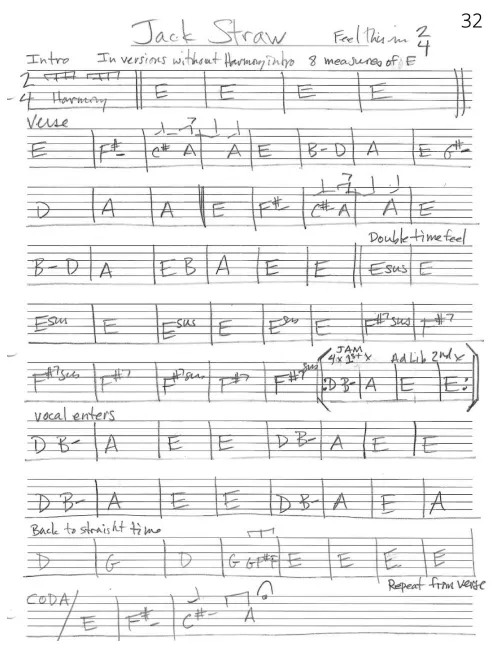 32
Jack Straw Feel this in 2/4
Intro In versions without Harmony intro 8 measures of E
2/4 Harmony E E E E
Verse
E F#- C# A A E B-D A E G#-
D A A E F#- C# A A E
Double time feel
B-D A E B A E E Esus E
Esus E Esus E Esus E F#7sus F#7
JAM
4x 1st x Ad Lib 2nd x
F#7sus F#7 F#7sus F#7 F#7sus D B- A E E
vocal enters
D B- A E E D B- A E E
D B- A E E D B- A E A
Back to straight time
D G D G G F#E E E E E
Repeat from verse
CODA E F#- C#- A